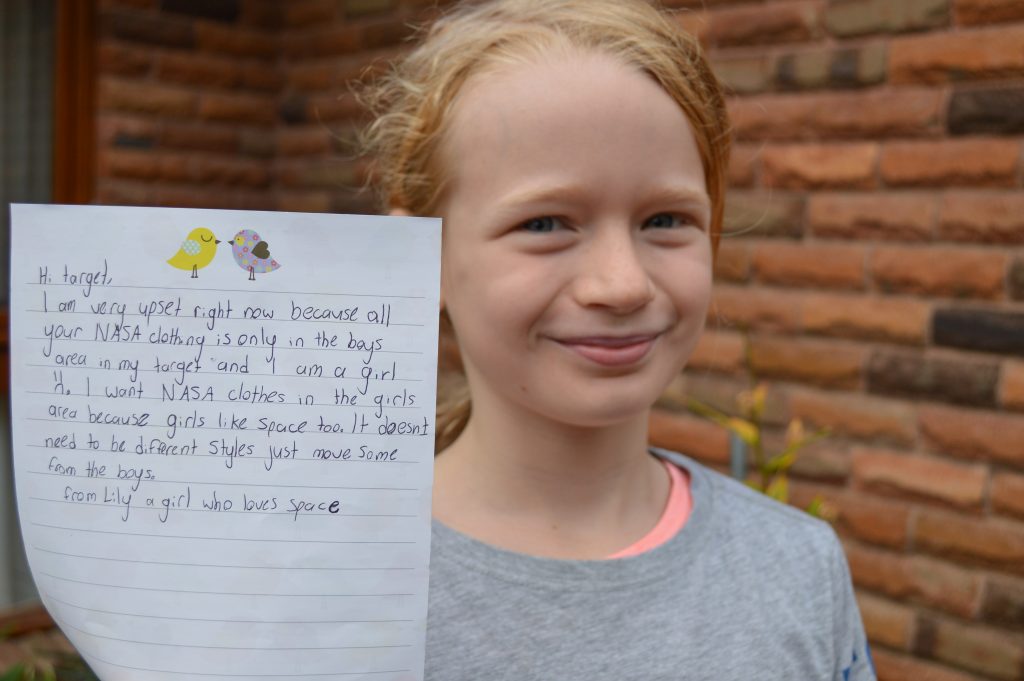 Hi target,
I am very upset right now because all
your NASA clothing is only in the boys
area in my target and I am a girl
I want NASA clothes in the girls
area because girls like space too. It doesnt
need to be different styles just move some
from the boys.
from Lily a girl who loves space